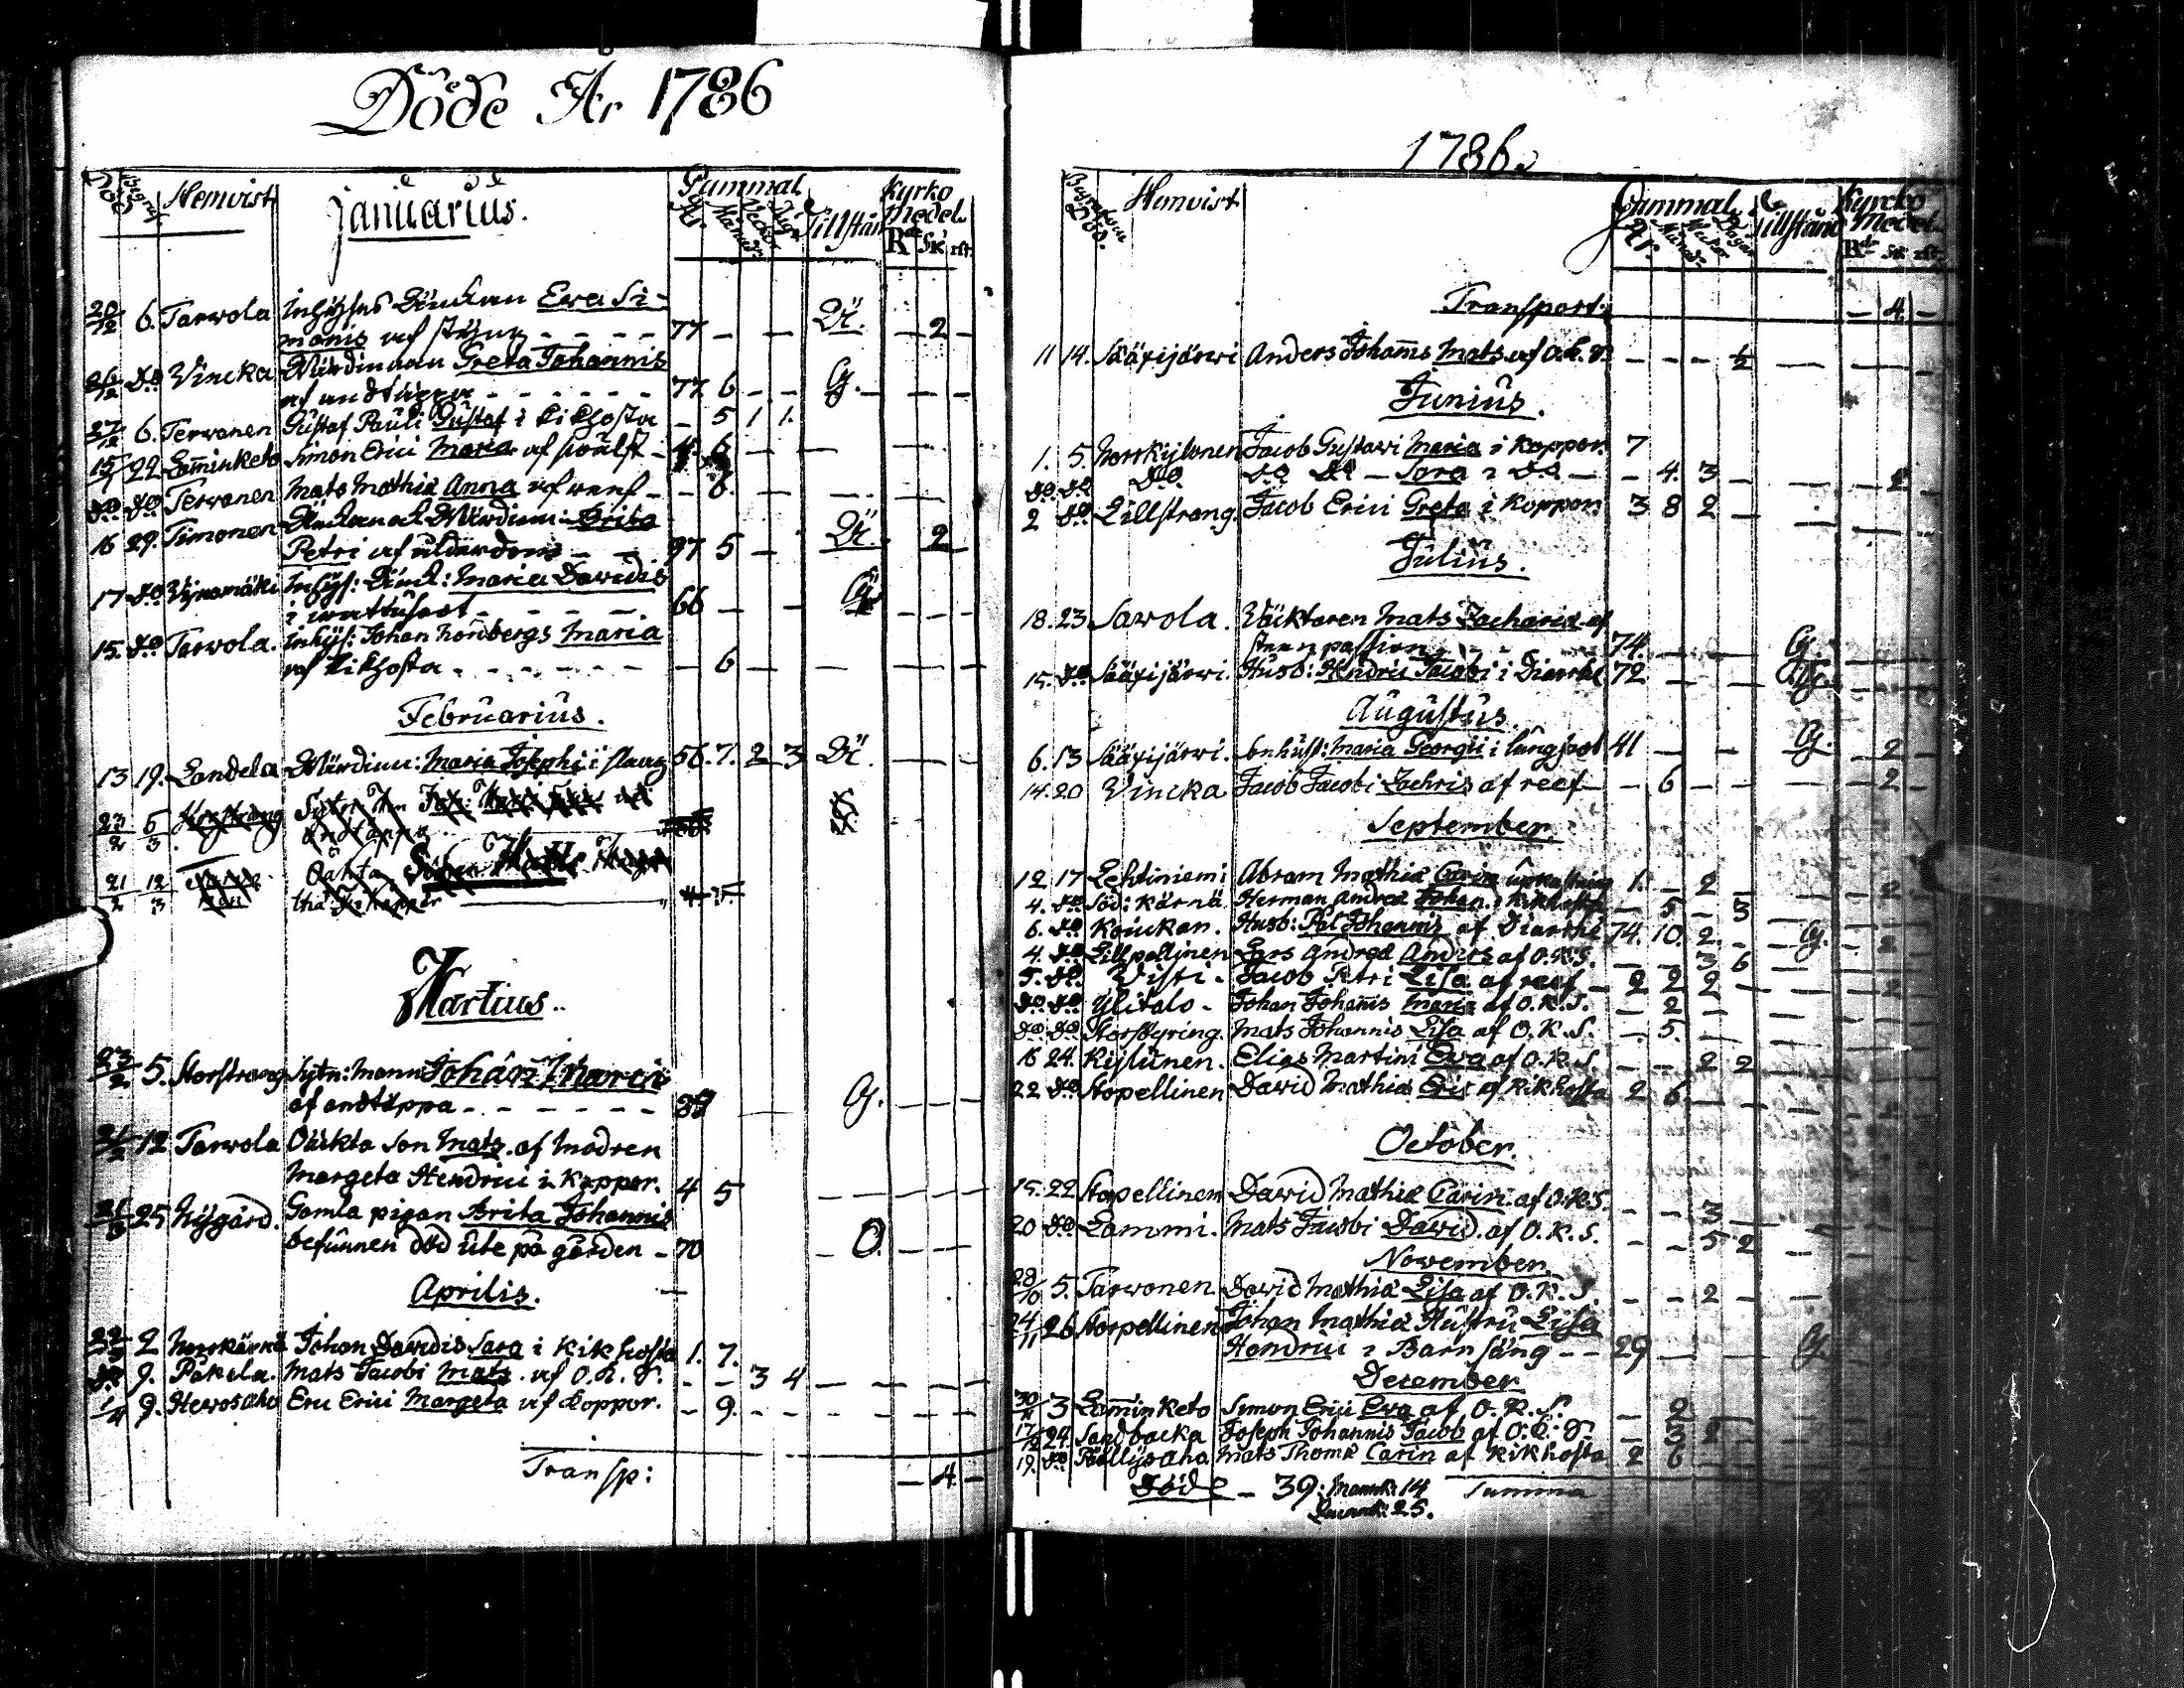 Döde År 1786
Död Begraf: Hemvist Januarius. Gammal År. Månad. Veckor Dagar Tillstånd Kyrko Medel. Rdr Sk rst.
20/12 6. Tarvola Inhyses Enckan Eva Si-
monis af styng - - - - 77 - - - Ei. - 2 -
26/12 do Vincka Wärdinnan Greta Johannis
af andtäppa - - - - - - 77 6 - - G. - - -
27/12 6. Tervonen Gustaf Pauli Gustaf i kikhosta - 5 1 1.
15/1 22 Lam̄inketo Simon Erici Maria af swulst - 4. 6 - - -
do do Tervonen Mats Mathiæ Anna af - - 8. - - -
16 29. Timonen Enckan och Wärdinn: Brita
Petri af ålderdom - - 97 5 - Ei. 2
17 do Wijnamäki Inhys: Enck: Maria Davidis
i wattusoot - - - - - 66 - - G - - -
15. do Tarvola. Inhys: Johan Maria
af kikhosta - - - - - - - 6 - - - - -
Februarius.
13 19. Landela Wärdinn: Maria Josephi i slaag 56. 7. 2 3 Ei. - - -
23/2 5/3. Storstrang
andtäppa
21/2 12/3 Oäkta
Koppor
Martius..
23/2 5. Storstrang Sytn: Mann Johan Marci
af andtäppa - - - - - - G. - - -
21/2 12 Tarvola Oäckta son Mats af modren
Margeta Hendrici i Koppor. 4 5 - - - - -
21/3 25 Nygård. Gamla pigan Brita Johannis
befunnen död ute på gården - 70 - O. - - -
Aprilis. -
2 Norrkärnä Johan Davidis Sara i Kikhosta 1. 7.
do 9. Påkela. Mats Jacobi Mats af O.K.S. - - 3 4 - - - -
1/4 9. Hevosaho Eric Erici Margeta af Koppor. - 9. - - - - - -
Transp: - 4 -
1786.
Hemvist Gammal År. Månad. Veckor Dagar Tillstånd Kyrko Medel. Rdr Sk rst.
Transport. - 4. -
11 14. Sääxijärvi Anders Johan̄is Mats af O.K.S. - - - ½ - - - -
Junius.
1. 5. Norrkylönen Jacob Gustavi Maria i Koppor. 7
do do do do do - Sara i do - - 4. 3 - - - 2 -
2 do Lillstrang. Jacob Erici Greta i Koppor 3 8 2 - - - - -
Julius.
18. 23 Savola. Wäcktaren Mats Zachariæ af
steenpassion - - - 74. - - - G. - - -
15. do Sääxijärvi. Husb: Hendric Jacobi i Diarrhé 72 - - - G. - - -
Augustus.
6. 13 Sääxijärvi. Maria Georgii i lungsoot 41 - - G. - 2 -
14. 20 Vincka Jacob Jacobi Zachris af reef - - 6 - - - - 2 -
September.
12 17 Lehtiniemi Abram Mathiæ Carin 1. - 2 - - - 2 -
4. do Söd: Kärnä Herman Andreæ Johan i Kikhosta - 5 - 3
6. do Koiukan. Husb: Pål Johannis af Diarrhé 74. 10. 2. - G. - 2
4. do Lillpellinen Lars Andreæ Anders af O.K.S. - - 3 6 -
5. do Visti - Jacob Petri Lisa af reef - 2 2 2 - - - 2
do do Ylitalo - Johan Johan̄is Maria af O.K.S. - 2
do do Storbyring. Mats Johannis Lisa af O.K.S. - 5. - -
16 24. Keisunen. Elias Martini Eva af O.K.S. - - 2 2
22 do Stopellinen David Mathiæ Eric af Kikhosta 2 6 - - - - -
October.
15. 22 Stopellinen David Mathiæ Carin af O.K.S. - - 3 -
20 do Lammi. Mats Jacobi David af O.K.S. - - 5 2 - - - -
November.
28/10 5. Tarvonen. David Mathiæ Lisa af O.K.S. - - 2 - - -
24/11 26 Storpellinen Johan Mathiæ Hustru Lisa
Hendrici i Barnsäng - - 29 - - - G. - - -
December
30/11 3 Lam̄inketo Simon Erici Eva af O.K.S. - 2 - -
17/12 24. Sandbacka Joseph Johannis Jacob af O.K.S. - 3 2
19. do Pällysaho Mats Thomæ Carin af Kikhosta 2 6 - -
Döde - 39: Mank: 14 Summa
Qvinnk: 25.